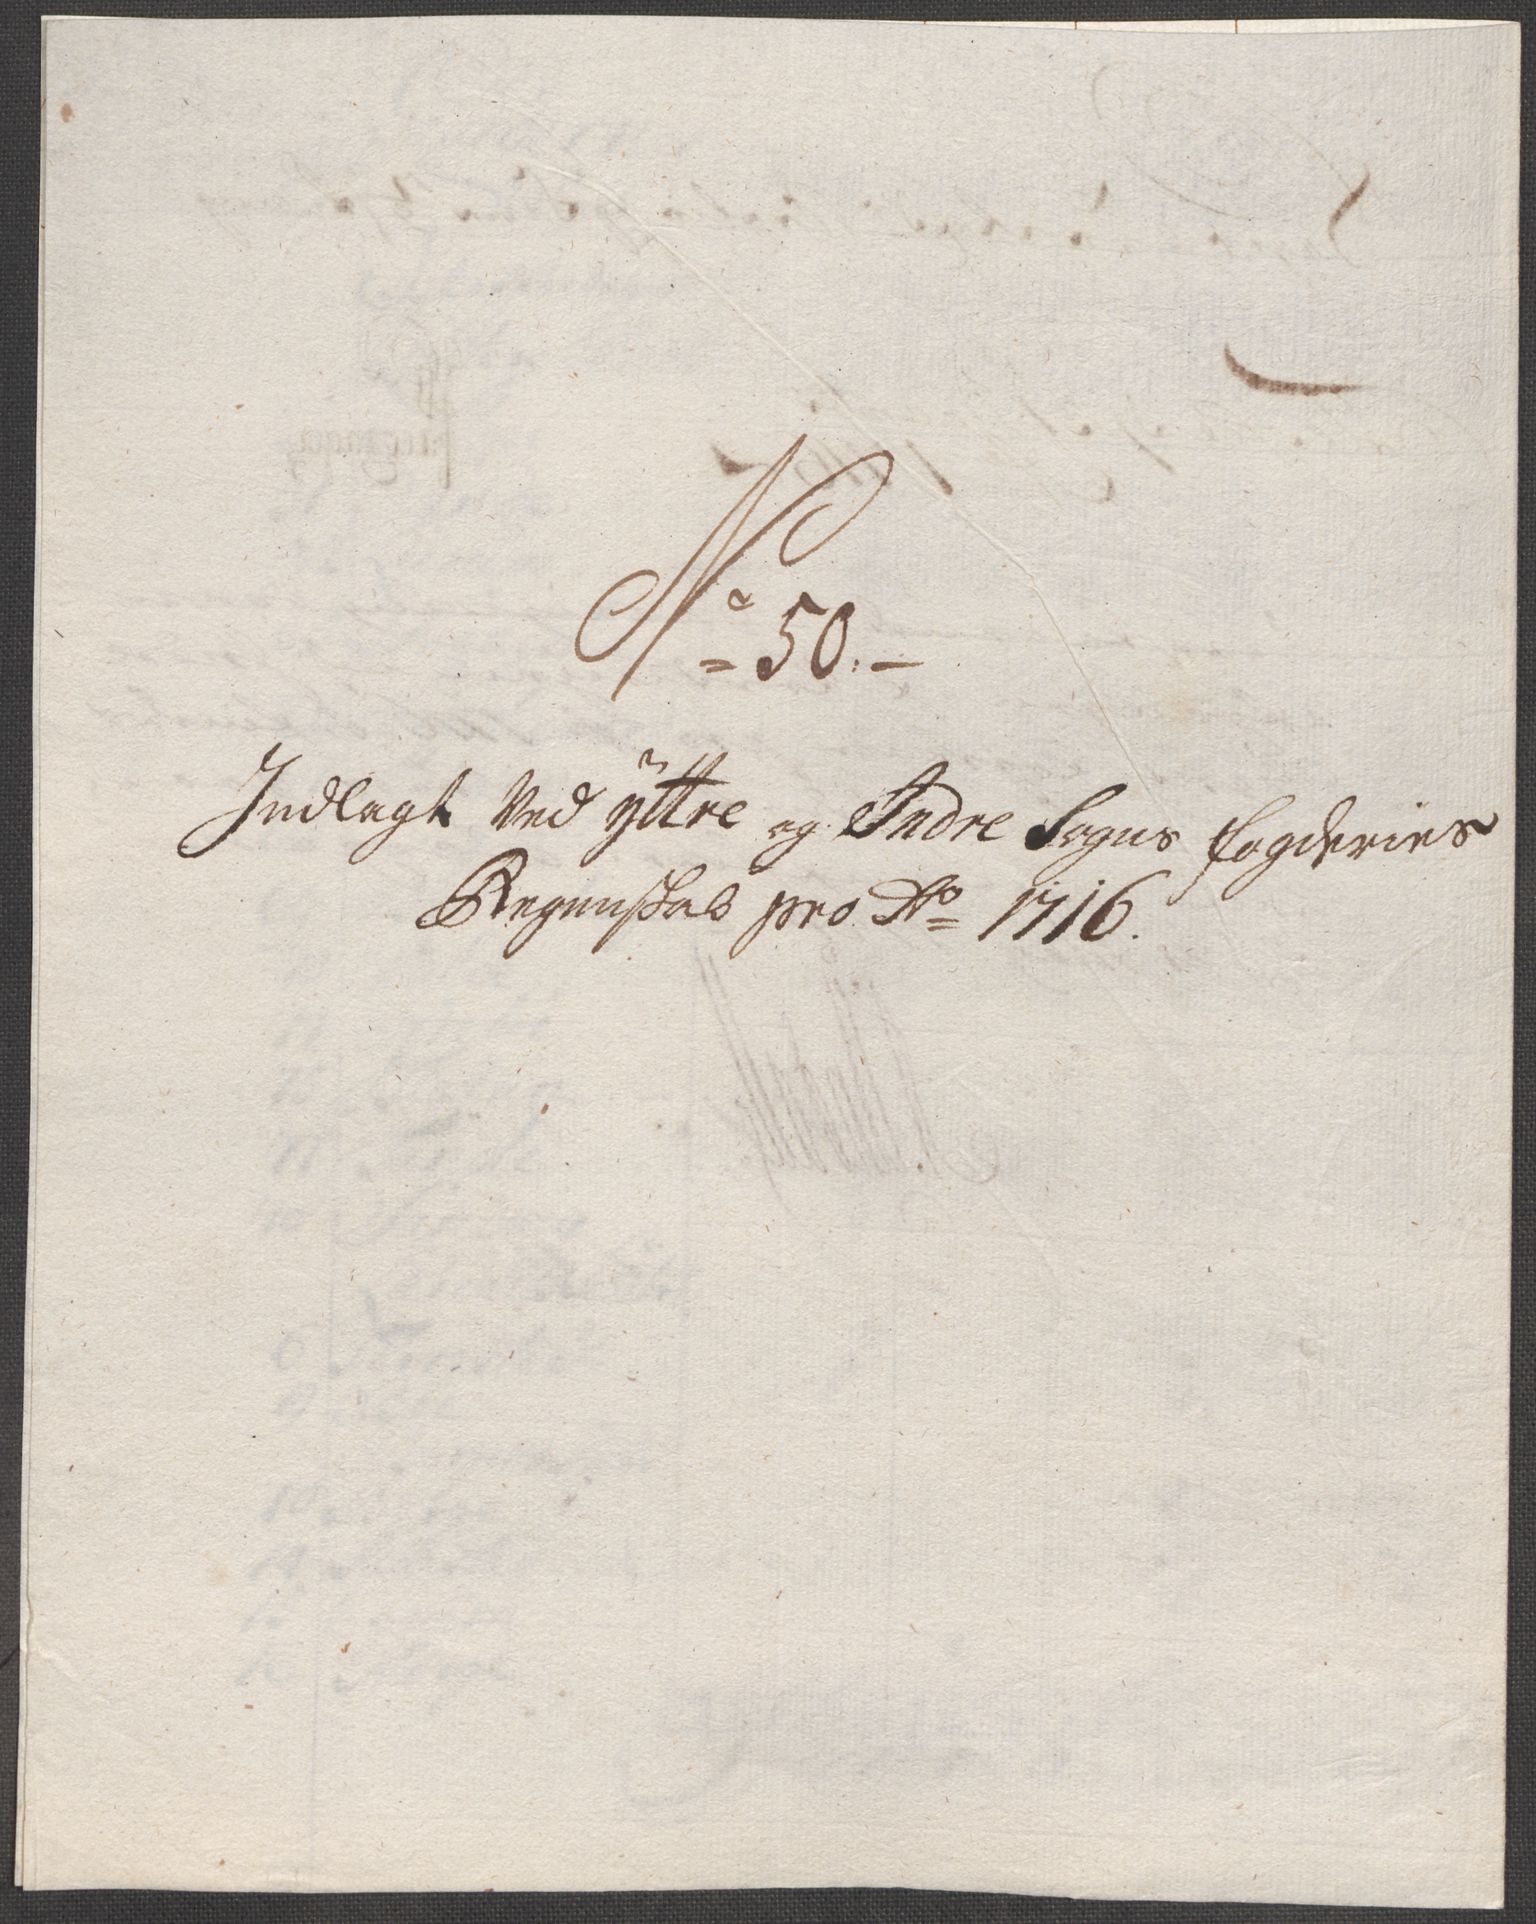 No 50.-
Indlagt Ved ÿttre og Indre Sogns fogderies
Regenskab pro Ao 1716.